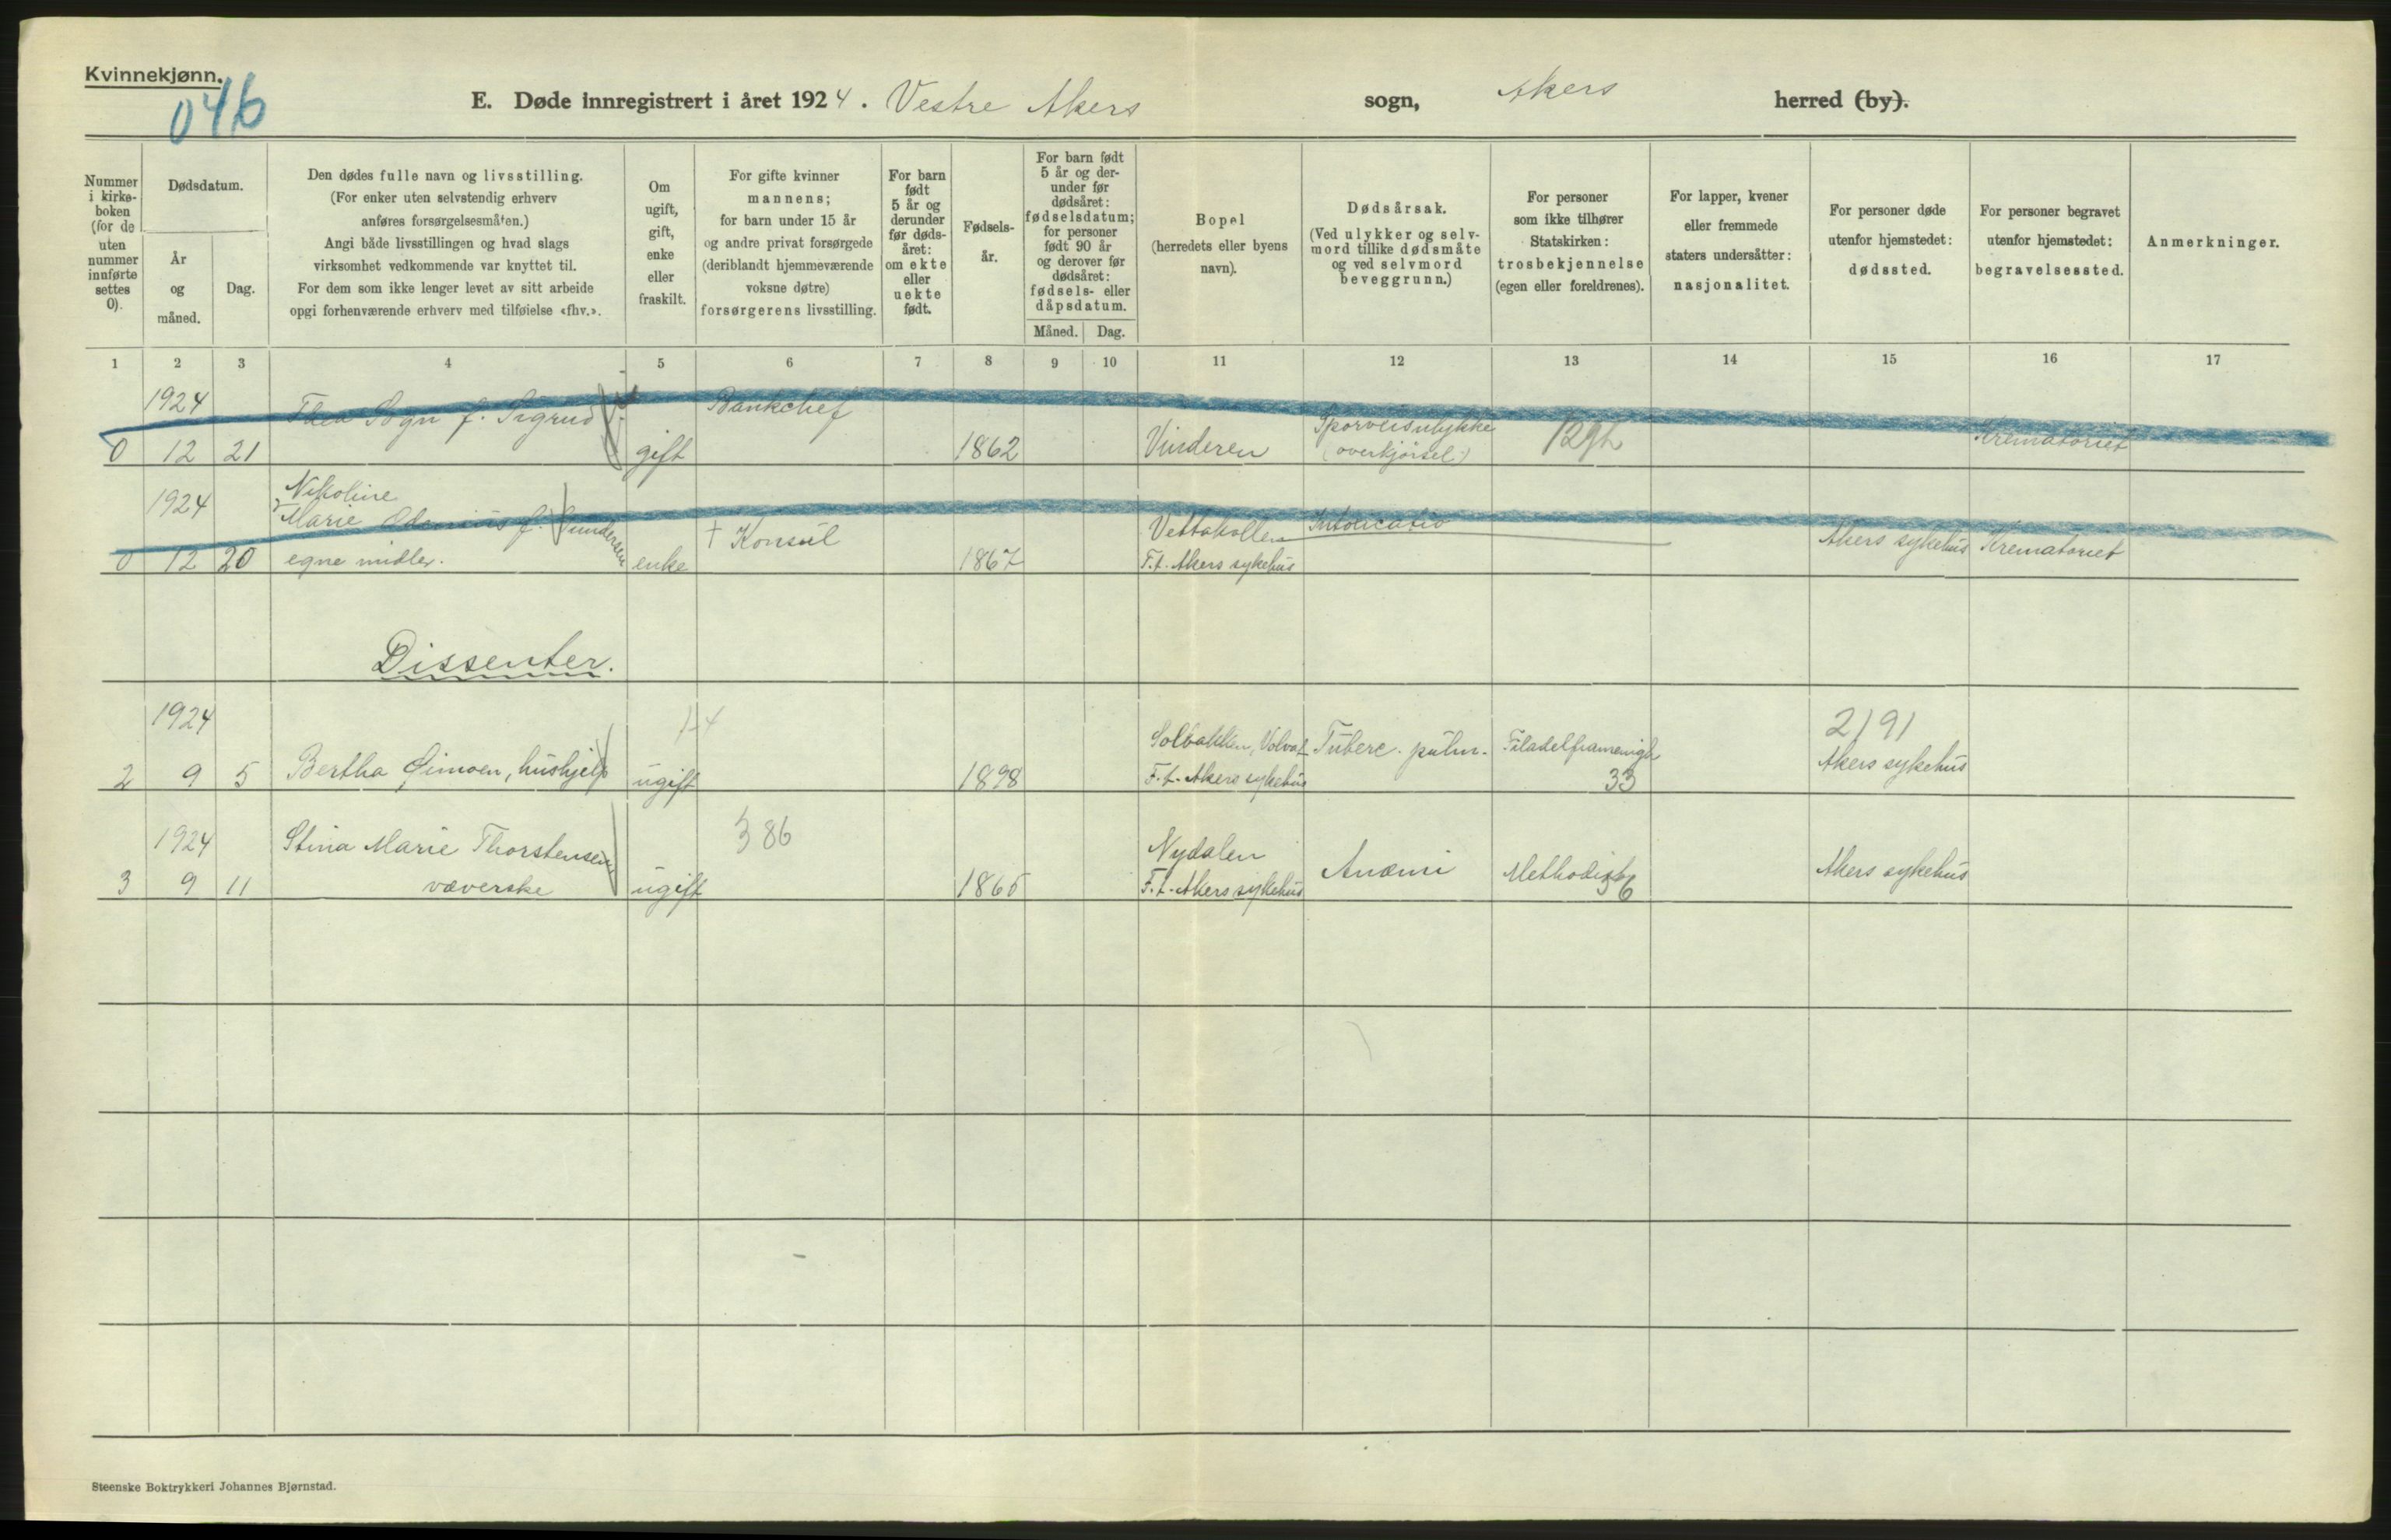 Kvinnekjønn.
046
E. Døde innregistrert i året 1924. Vestre Akers sogn, Akers herred (by).
Nummer i kirkeboken (for de uten nummer innførte settes 0).
Dødsdatum.
År og måned.
Dag.
Den dødes fulle navn og livsstilling.
(For enker uten selvstendig erhverv
anføres forsørgelsesmåten.)
Angi både livsstillingen og hvad slags
virksomhet vedkommende var knyttet til.
For dem som ikke lenger levet av sitt arbeide
opgi forhenværende erhverv med tilføielse «fhv.».
Om ugift, gift, enke eller fraskilt.
For gifte kvinner
mannens;
for barn under 15 år
og andre privat forsørgede
(deriblandt hjemmeværende
voksne døtre)
forsørgerens livsstilling.
For barn født 5 år og derunder før dødsåret: om ekte eller uekte født.
Fødselsår.
For barn født 5 år og derunder før dødsåret: fødselsdatum; for personer født 90 år og derover før dødsåret: fødsels- eller dåpsdatum.
Måned. Dag.
Bopel
(herredets eller byens
navn).
Dødsårsak.
(Ved ulykker og selvmord tillike dødsmåte og ved selvmord beveggrunn.)
For personer
som ikke tilhører
Statskirken:
trosbekjennelse
(egen eller foreldrenes).
For lapper, kvener
eller fremmede
staters undersåtter:
nasjonalitet.
For personer døde
utenfor hjemstedet:
dødssted.
For personer begravet
utenfor hjemstedet:
begravelsessted.
Anmerkninger.
1 2 3 4 5 6 7 8 9 10 11 12 13 14 15 16 17
1924 Thea Sogn f. Bankchef Sporveisulykke Krematoriet
0 12 21 gift 1862 Vinderen (overkjørsel) 129h
Nikoline
1924 Marie f. Gundersen + Konsul Vettakollen Intoxicatio Akers sykehus Krematoriet
0 12 20 egne midler. enke 1867 F.t. Akers sykehus
Dissenter.
1924 14 2191
Solbakken, Tuberc. pulm.
2 9 5 Bertha Simoen, hushjelp ugift 1898 F.t. Akers sykehus 33 Akers sykehus
1924 Stina Marie Thorstensen 386 Nydalen
3 9 11 væverske ugift 1865 F.t. Akers sykehus Anæmi 36 Akers sykehus
Steenske Boktrykkeri Johannes Bjørnstad.